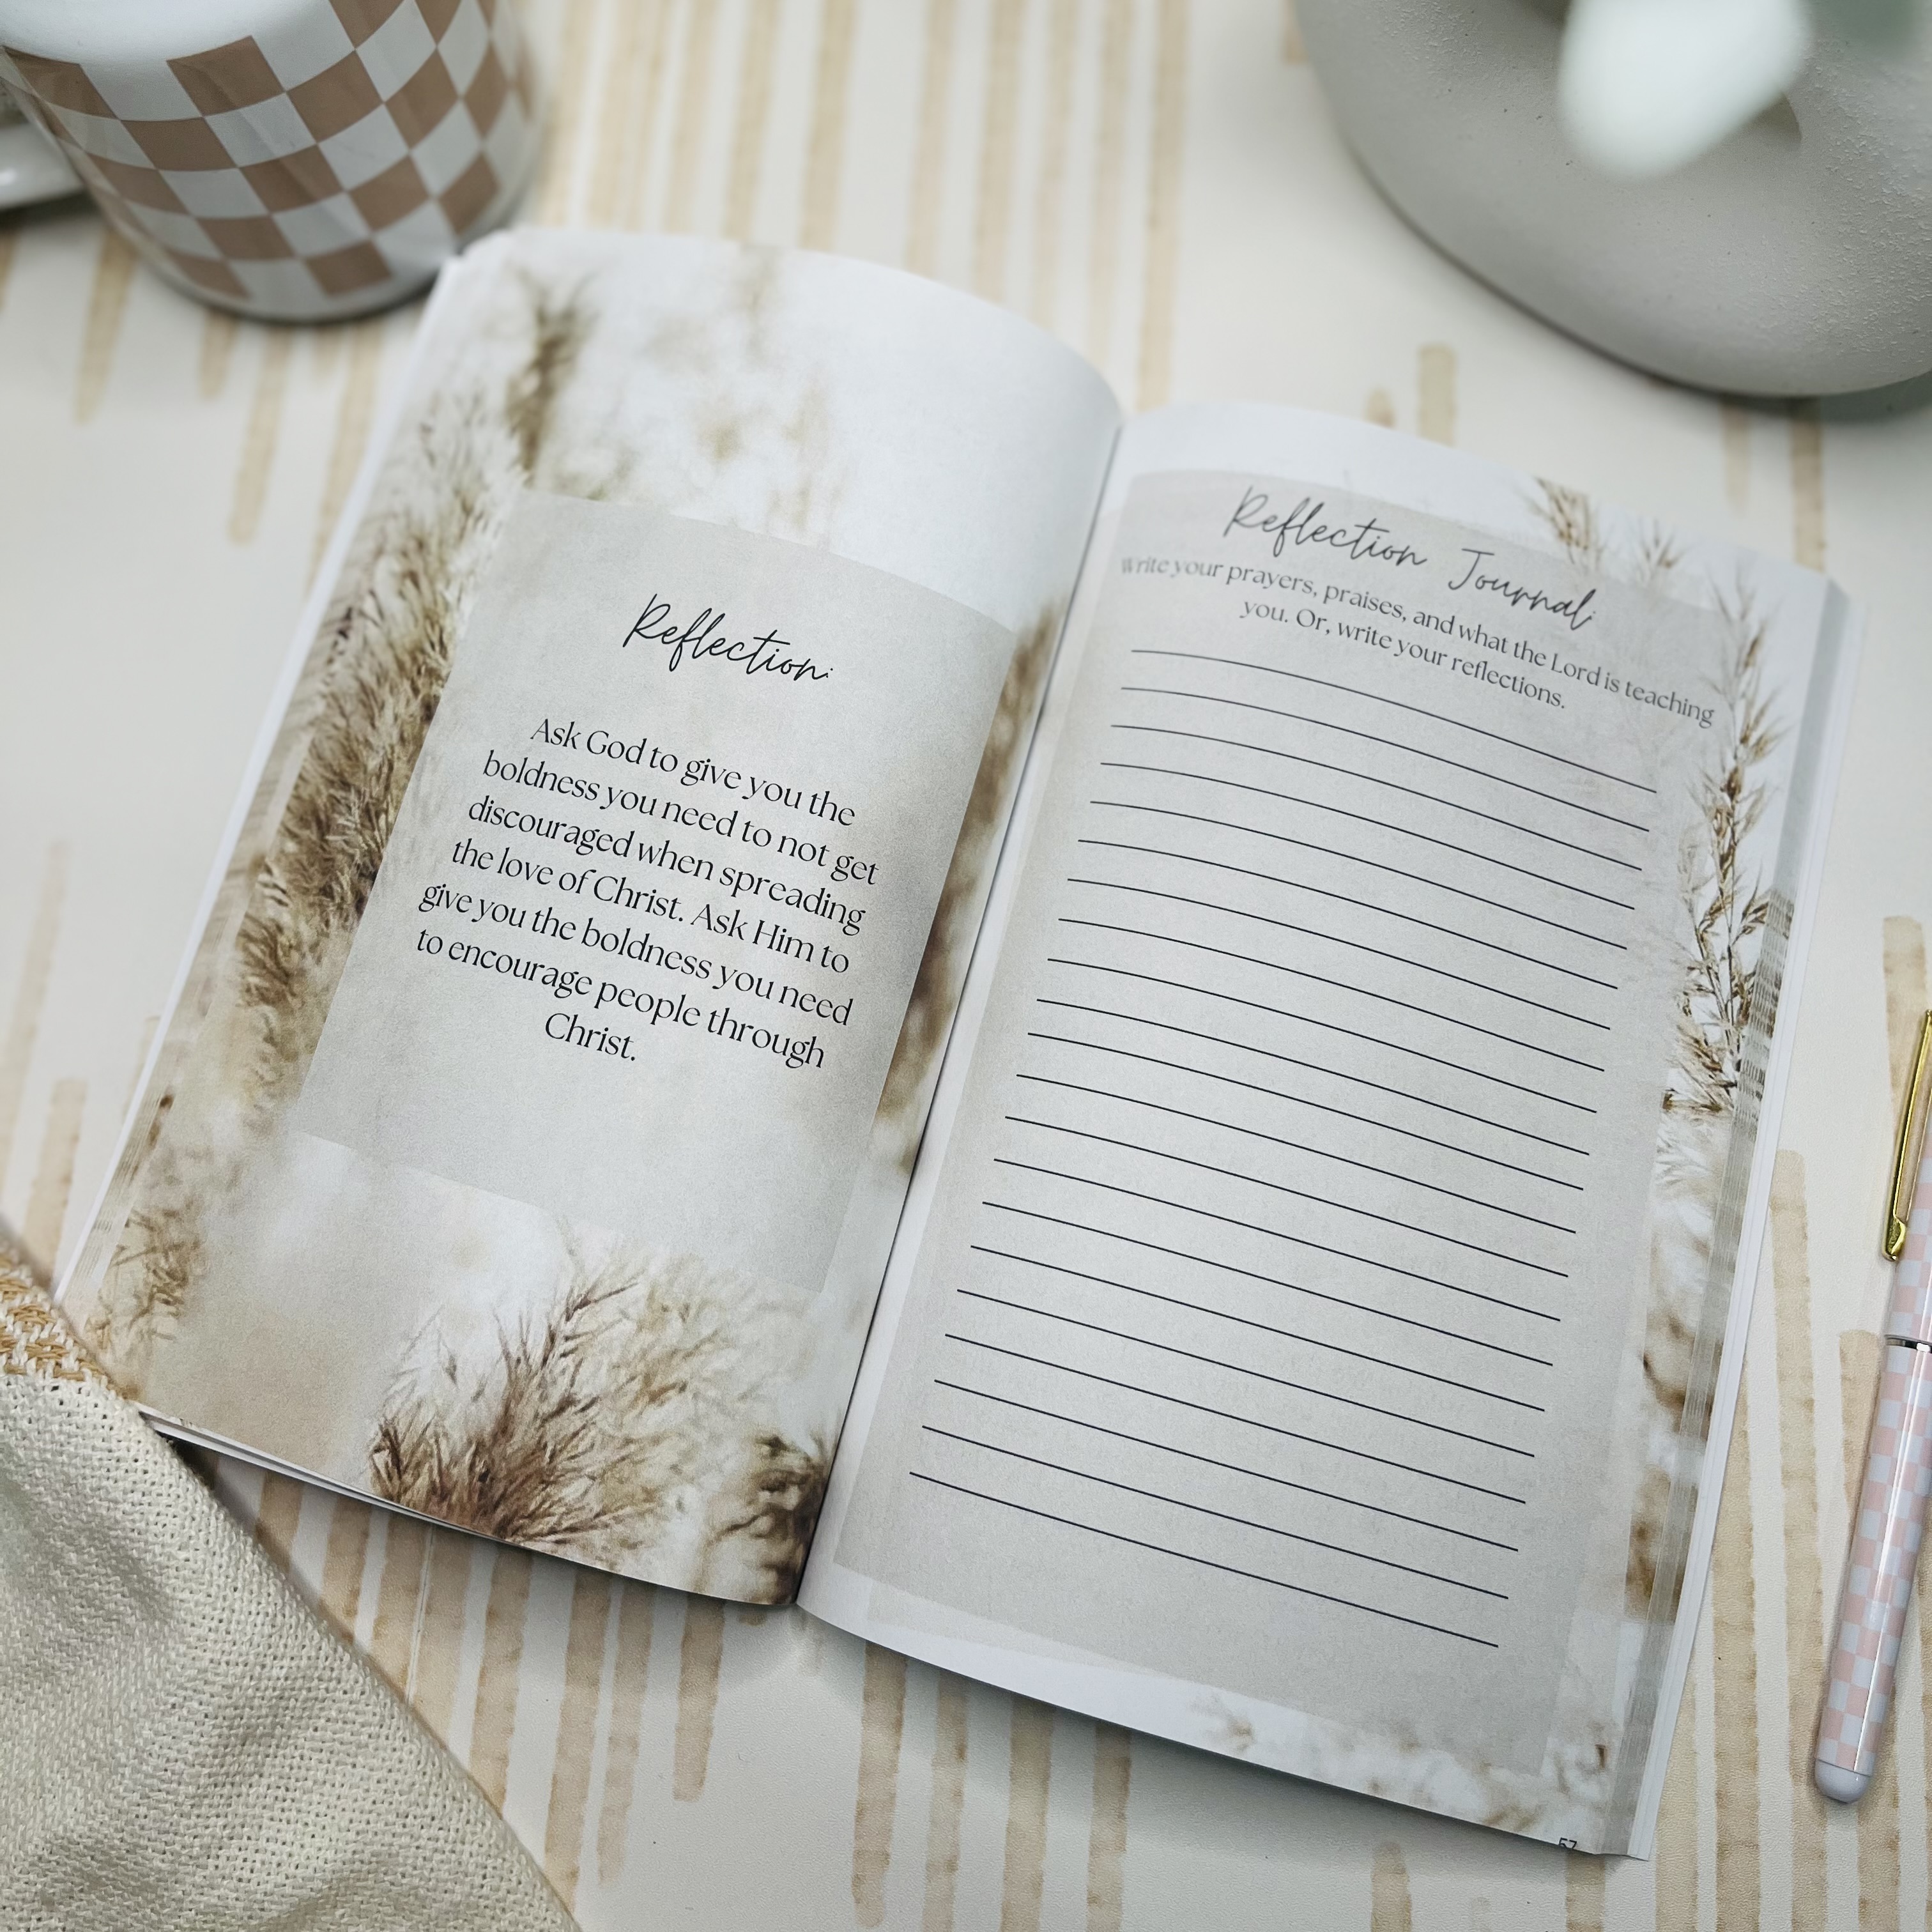 Reflection:
Ask God to give you the
boldness you need to not get
discouraged when spreading
the love of Christ. Ask Him to
give you the boldness you need
to encourage people through
Christ.
Reflection Journal:
Write your prayers, praises, and what the Lord is teaching
you. Or, write your reflections.
57